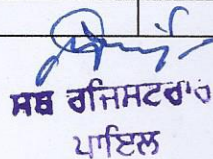 ਸਬ ਰਜਿਸਟਰਾਰ
ਪਾਇਲ